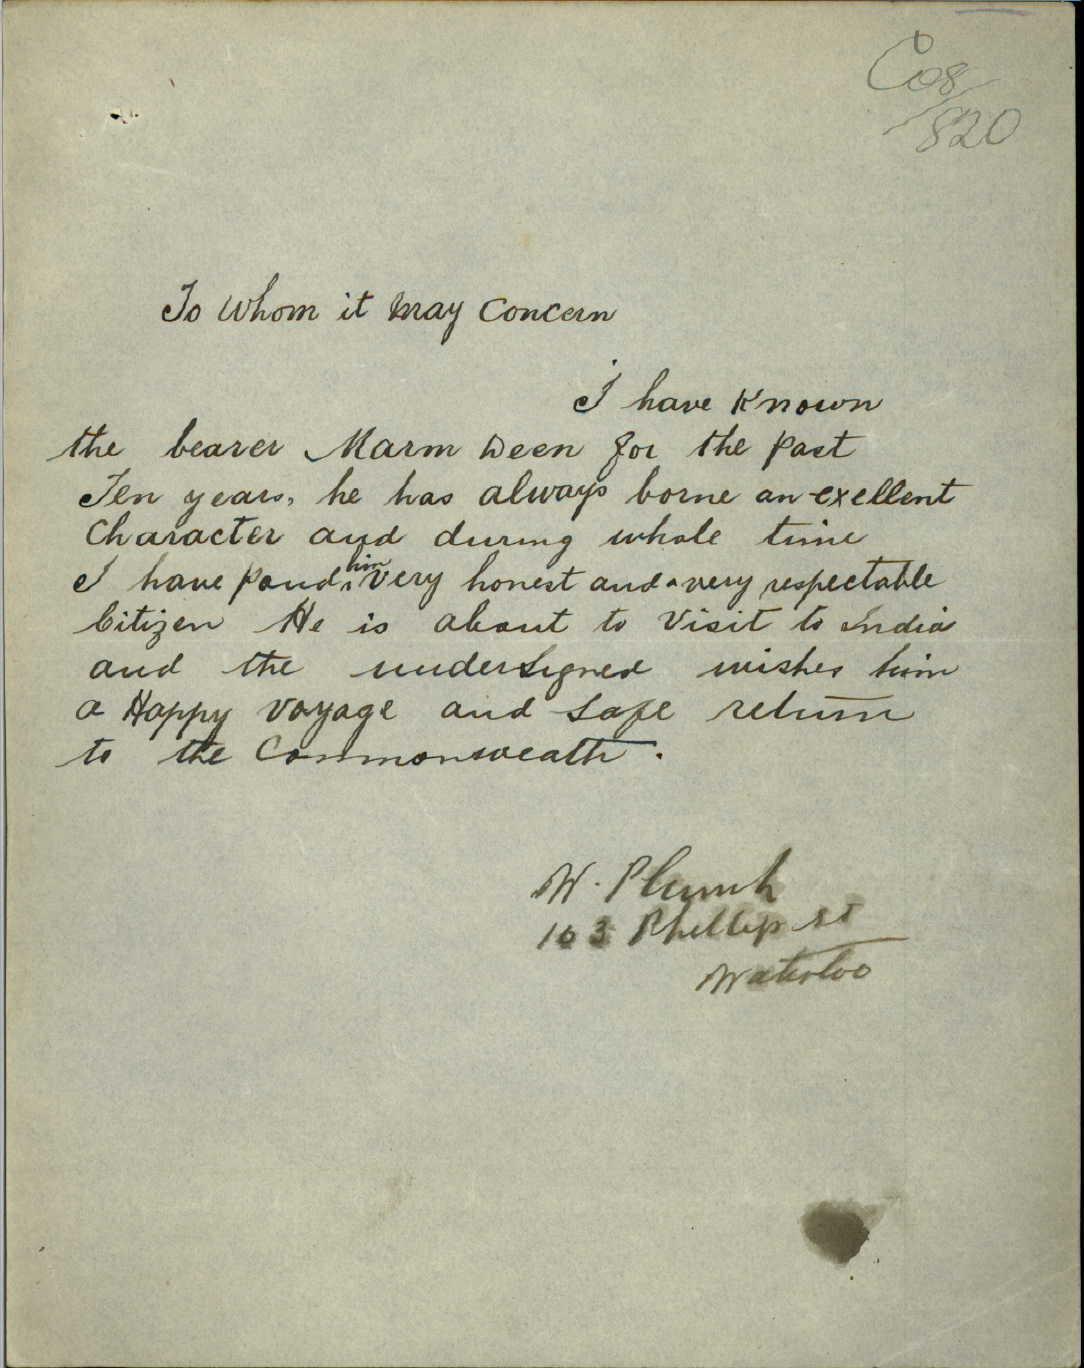 C08/820
To Whom it May Concern
I have Known
the bearer Marm Deen for the past
Ten years, he has always borne an exellent
Character and during whole time
I have Found him very honest and a very respectable
Citizen He is about to Visit to India
and the undersigned wishes him
a Happy voyage and safe return
to the Commonweath.
W. Plumb
163 Phillip St
Waterloo